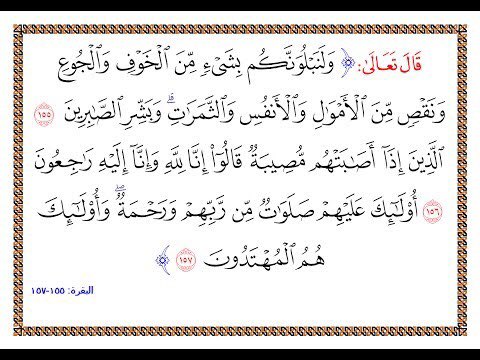 قَالَ تَعَالَىٰ: ﴿ وَلَنَبۡلُوَنَّكُم بِشَيۡءٖ مِّنَ ٱلۡخَوۡفِ وَٱلۡجُوعِ
وَنَقۡصٖ مِّنَ ٱلۡأَمۡوَٰلِ وَٱلۡأَنفُسِ وَٱلثَّمَرَٰتِۗ وَبَشِّرِ ٱلصَّٰبِرِينَ ١٥٥
ٱلَّذِينَ إِذَآ أَصَٰبَتۡهُم مُّصِيبَةٞ قَالُوٓاْ إِنَّا لِلَّهِ وَإِنَّآ إِلَيۡهِ رَٰجِعُونَ
١٥٦ أُوْلَٰٓئِكَ عَلَيۡهِمۡ صَلَوَٰتٞ مِّن رَّبِّهِمۡ وَرَحۡمَةٞۖ وَأُوْلَٰٓئِكَ
هُمُ ٱلۡمُهۡتَدُونَ ١٥٧ ﴾
البقرة: ١٥٥-١٥٧